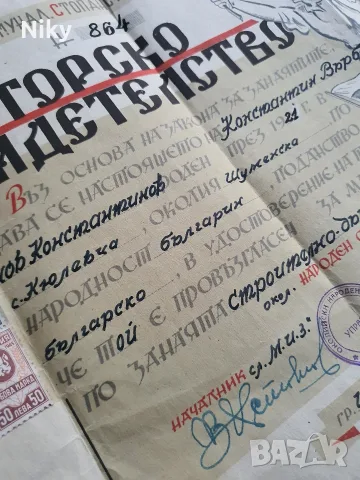 Niky
864
ТОРСКО
ИДЕТЕЛСТВО
ВЪЗ ОСНОВА НА ЗАКОНА ЗА ЗАНАЯТИТЕ,
АВА СЕ НАСТОЯЩЕТО НА Константин Върб
ов Константинов РОДЕН ПРЕЗ 1921 Г. В
с. Кюлевча, ОКОЛИЯ Шуменска
НАРОДНОСТ българин, ПОДАНСТВО
българско, В УДОСТОВЕРЕНИЕ НА
ЧЕ ТОЙ Е ПРОВЪЗГЛАСЕН ЗА
ПО ЗАНАЯТА строително-др
окол. НАРОДЕН
НАЧАЛНИК сл. М.И.З:
ОКОЛИЙСКИ НАРОДЕН
50 ЛЕВА 50
BAZAR
bg